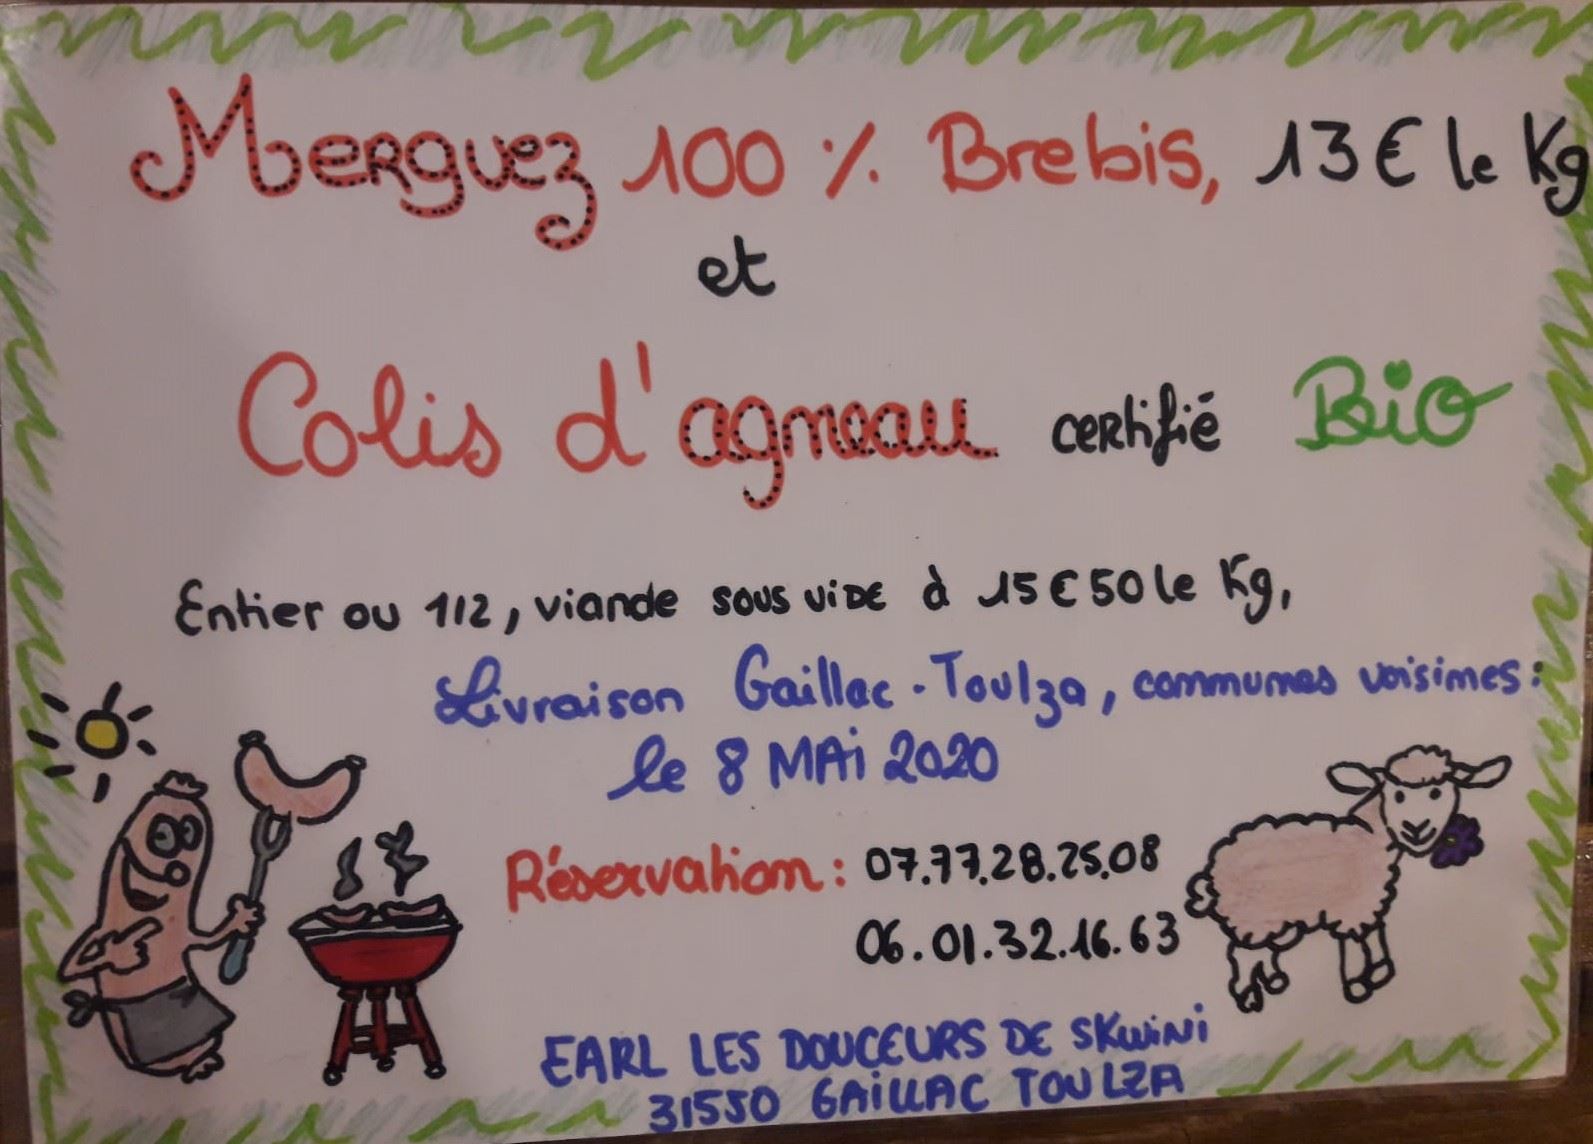 Merguez 100 % Brebis, 13€ le Kg
et
Colis d'agneau certifié Bio
Entier ou 1/2, viande sous vide à 15€50 le Kg,
Livraison Gaillac-Toulza, communes voisines :
le 8 MAi 2020
Réservation : 07.77.28.25.08
06.01.32.16.63
EARL LES DOUCEURS DE SKWiNi
31550 GAiLLAC TOULZA